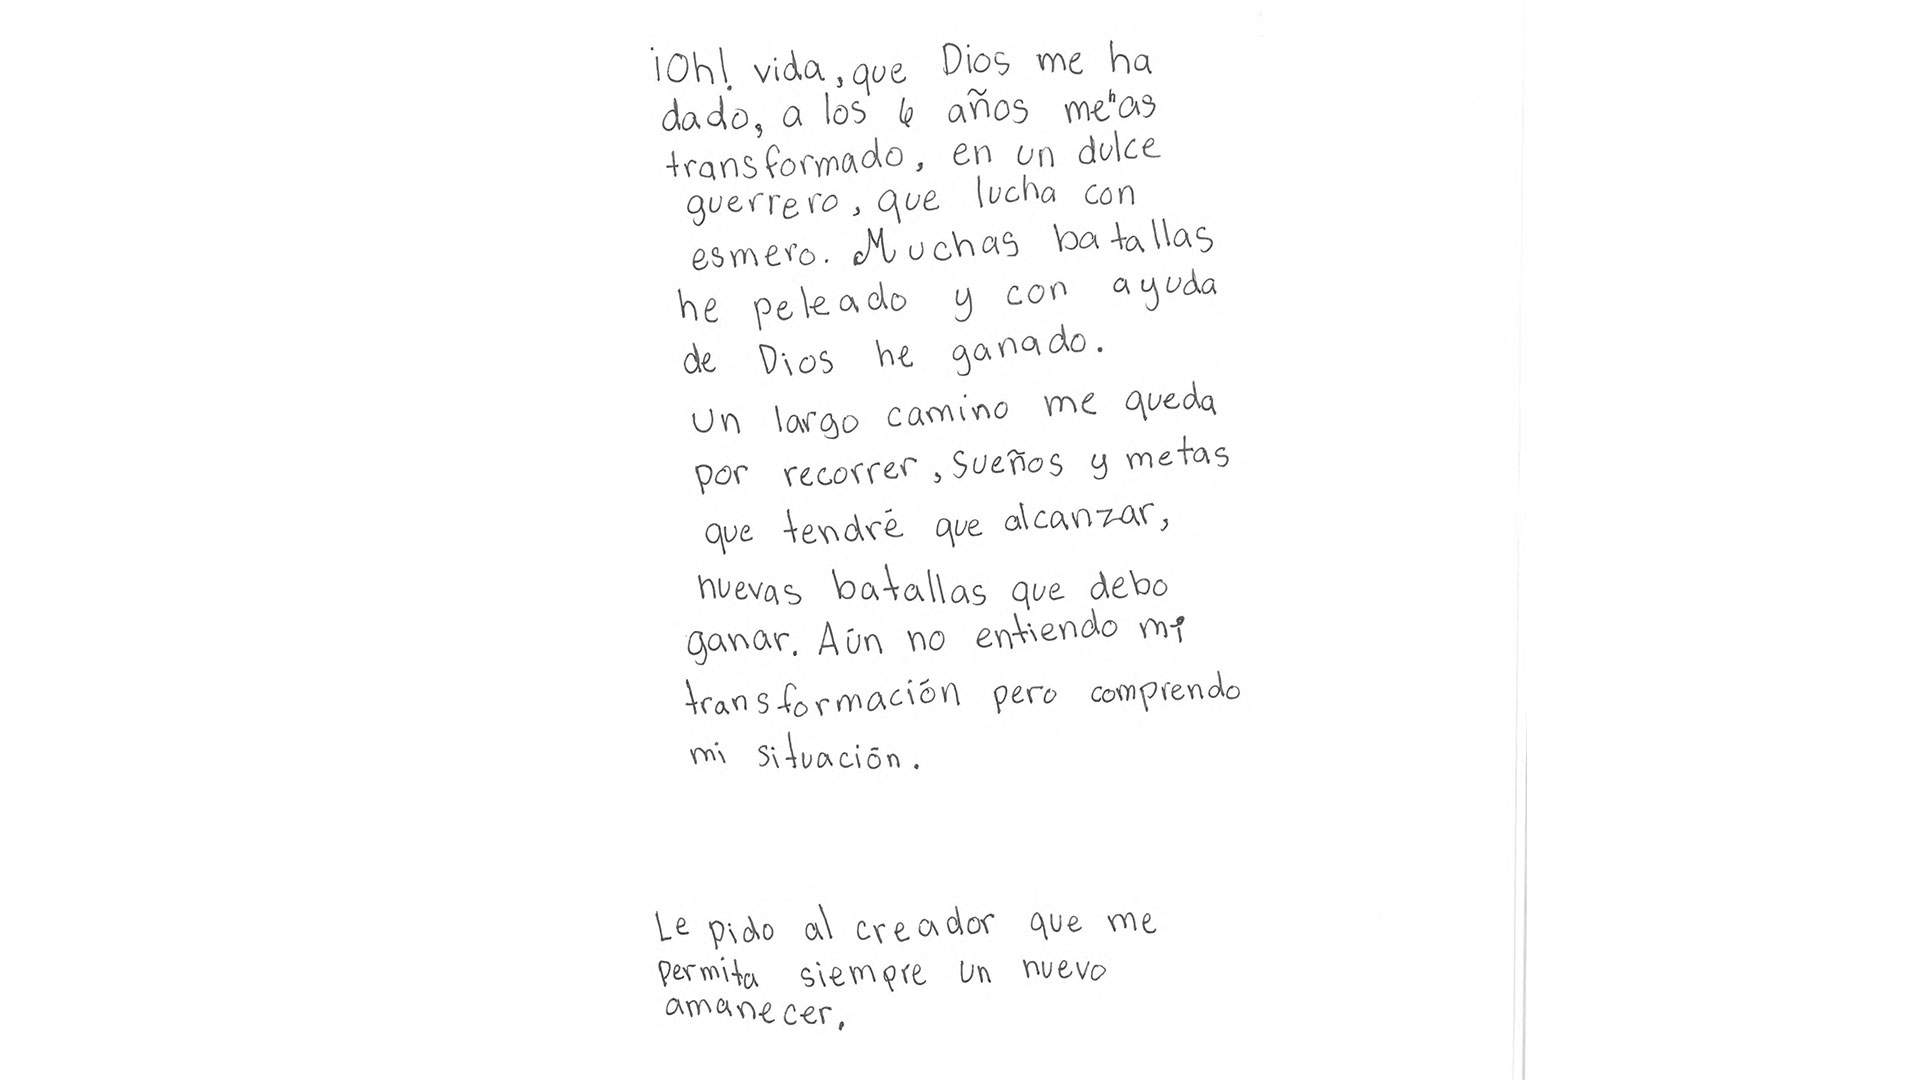 ¡Oh! vida, que Dios me ha
dado, a los 6 años me has
transformado, en un dulce
guerrero, que lucha con
esmero. Muchas batallas
he peleado y con ayuda
de Dios he ganado.
Un largo camino me queda
por recorrer, sueños y metas
que tendré que alcanzar,
nuevas batallas que debo
ganar. Aún no entiendo mi
transformación pero comprendo
mi situación.
Le pido al creador que me
permita siempre un nuevo
amanecer.